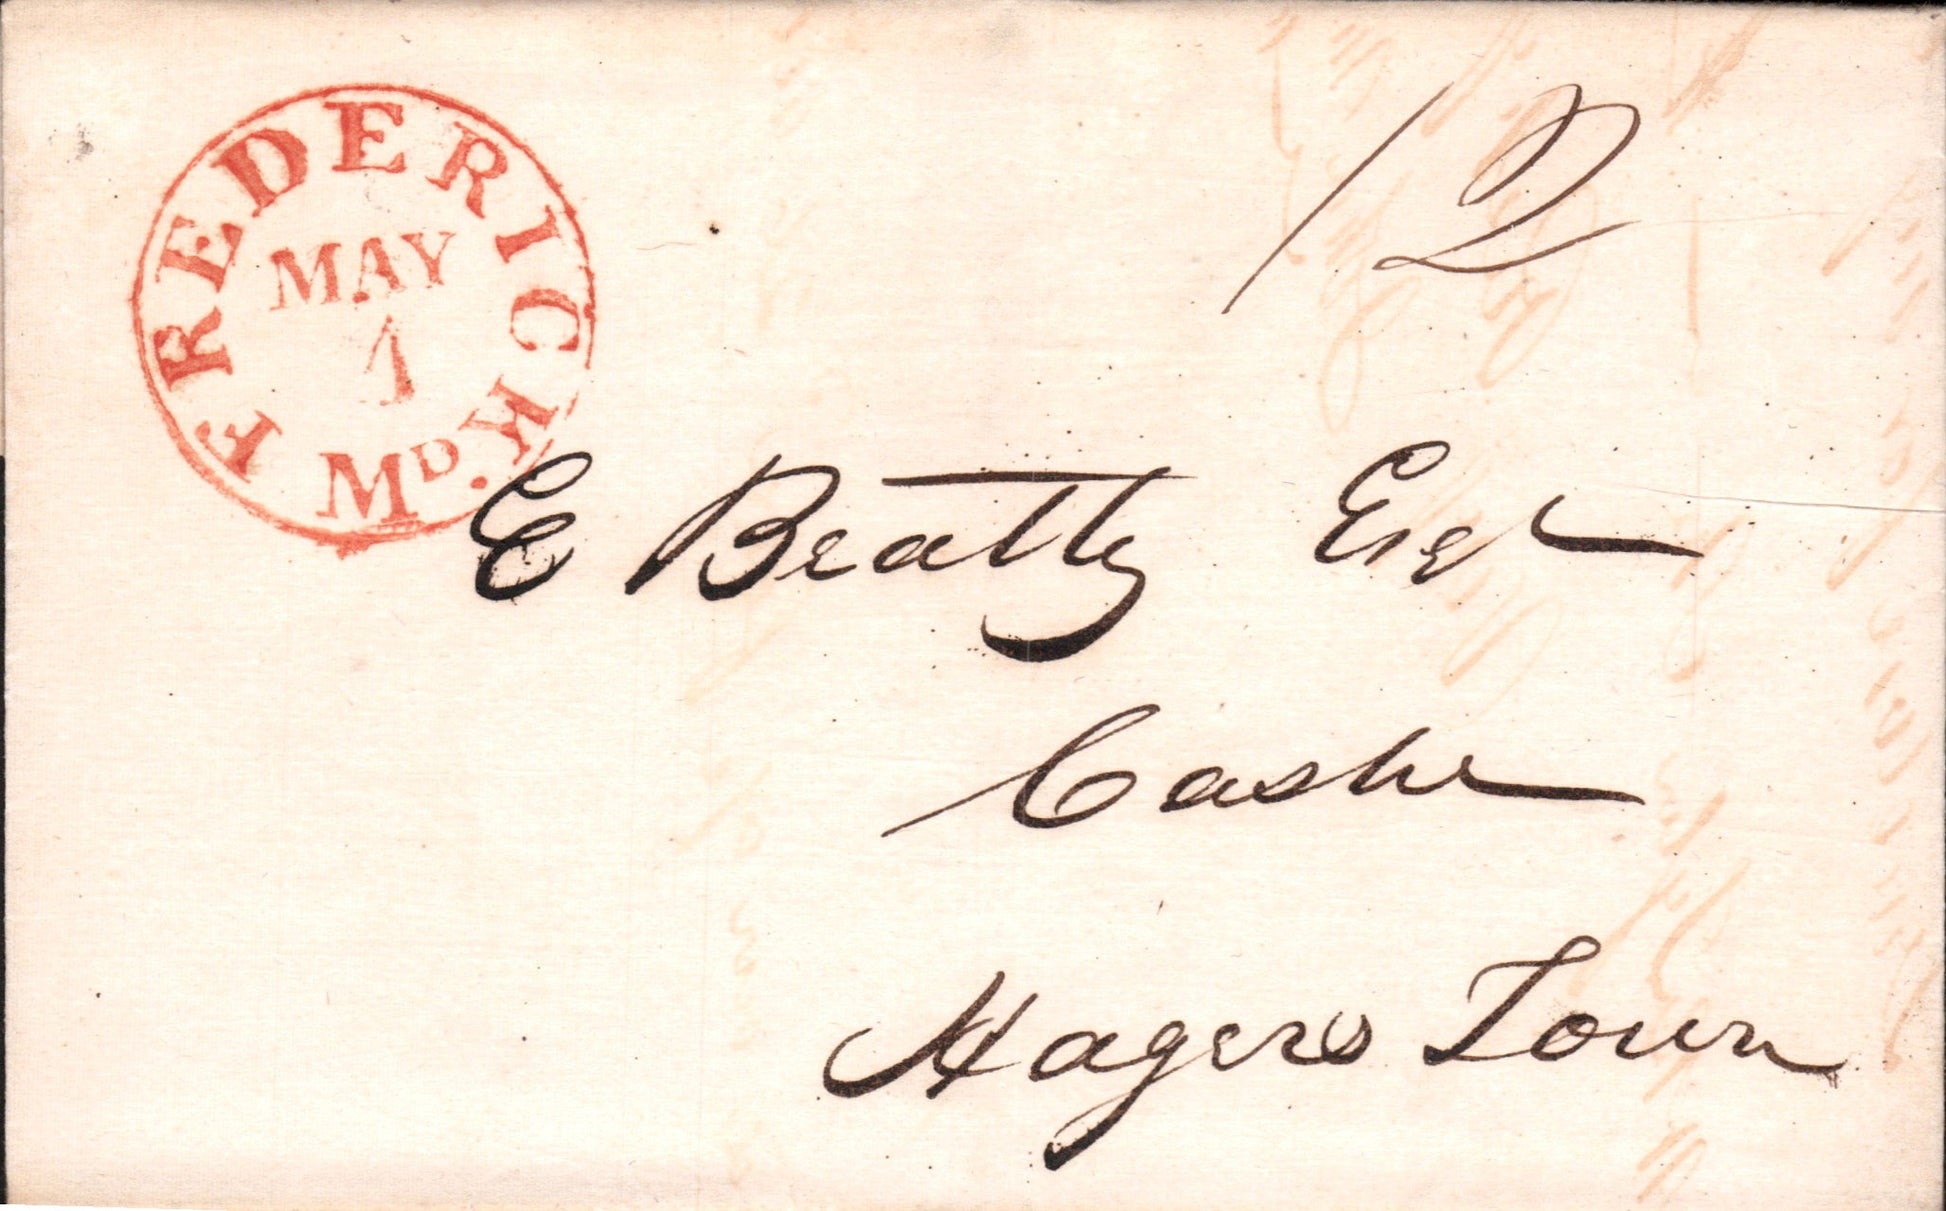 FREDERICK
MAY
1
MD.
12
E Beatty Esqr
Cashr
Hagers Town